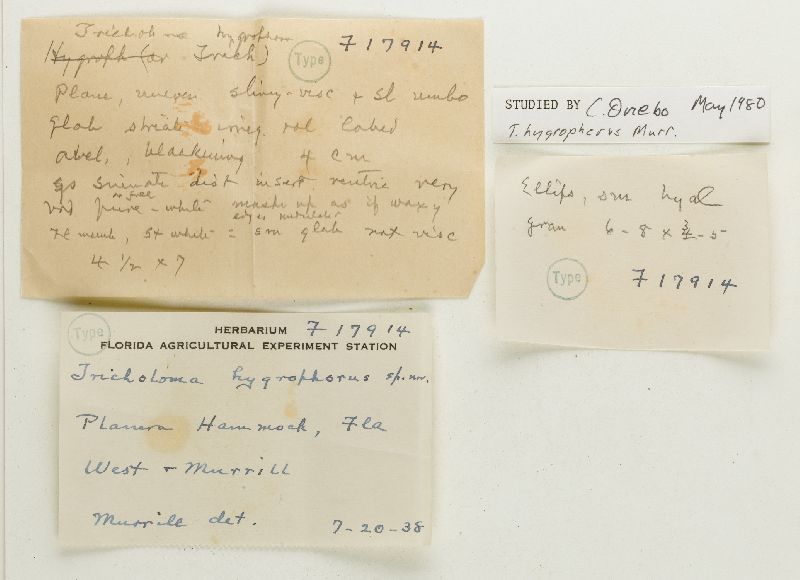 Tricholoma hygrophorus
Hygroph (or Trich)
Type
F 17914
Plane, uneven slimy-visc + sl umbo
glab striate irreg rol lobed
avel, blackening 4 cm
gs sinuate dist insert ventric very
brd pure-white
edges undulate
st white = sm glab not visc
4 1/2 x 7
STUDIED BY C. Ovrebo May 1980
T. hygrophorus Murr.
Ellips, sm hyal
gran 6-8 x 5
Type
F 17914
Type
HERBARIUM F 17914
FLORIDA AGRICULTURAL EXPERIMENT STATION
Tricholoma hygrophorus sp. nov.
Planera Hammock, Fla
West + Murrill
Murrill det. 7-20-38